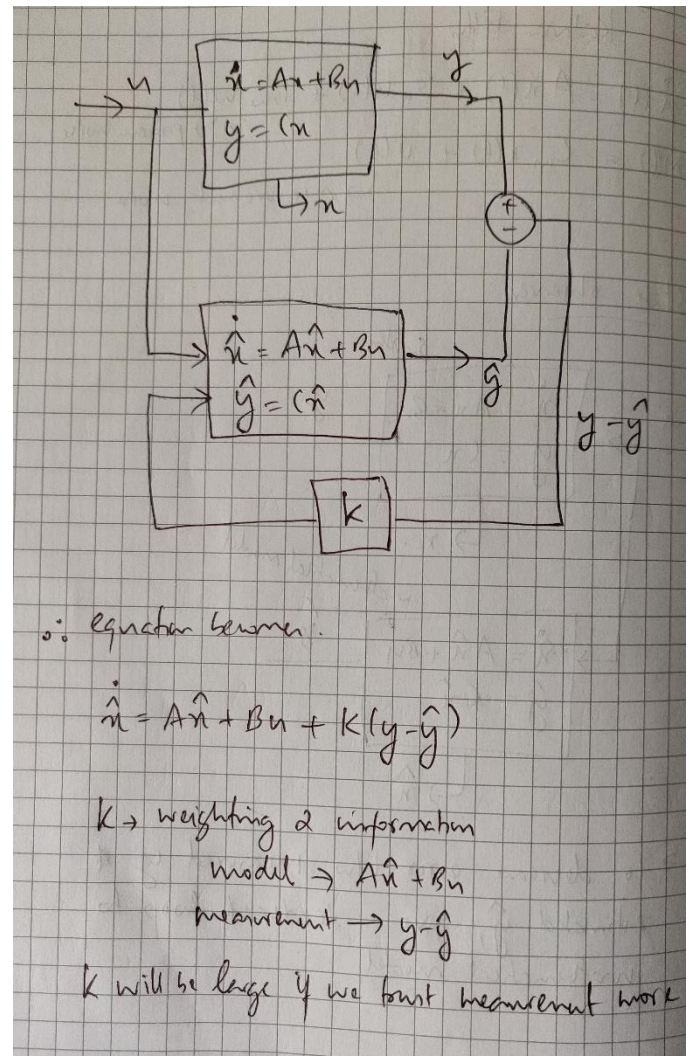 u
ẋ = Ax + Bu
y = Cx
y
↳ x
+
−
x̂̇ = Ax̂ + Bu
ŷ = Cx̂
ŷ
y - ŷ
k
∴ equation becomes.
x̂̇ = Ax̂ + Bu + K(y-ŷ)
K → weighting 2 information
model → Ax̂ + Bu
measurement → y-ŷ
K will be large if we trust measurement more